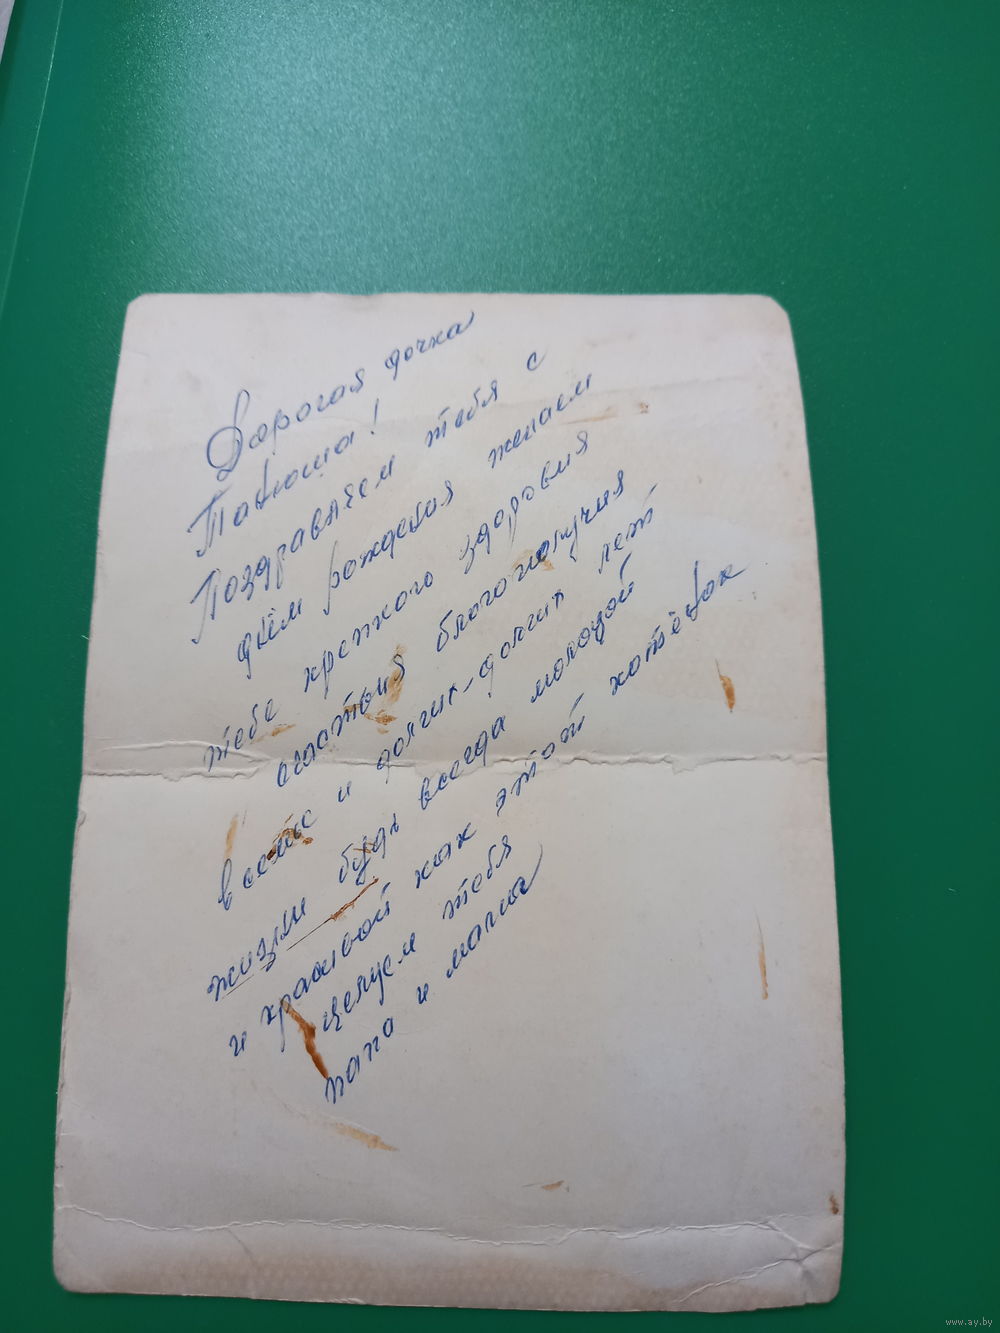 Дорогая дочка
Танюша!
Поздравляем тебя с
днём рождения желаем
тебе крепкого здоровия
счастья благополучия
в семье и долгих-долгих лет
жизни будь всегда молодой
и красивой как этот котёнок
целуем тебя
папа и мама
www.ay.by